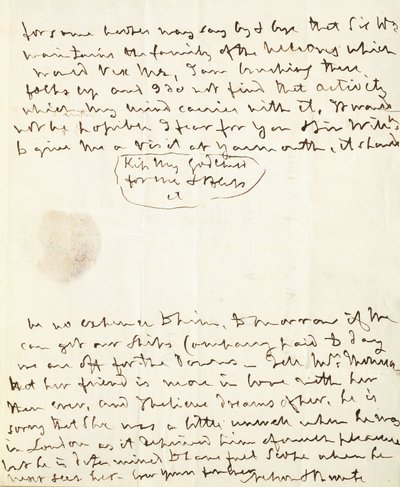 for some brother may say by & bye that Sir Wm
maintains the family of the Nelsons which
would vex me, I am brushing these
folks up and I do not find that activity
which my mind carries with it, It would
not be possible I fear for you & Sir Willm
to give me a visit at Yarmouth, it should
Kiss My God Child
for me & bless
it
be no expence to him, tomorrow if we
can get our Ships Company paid to day
we are off for the Downs — Tell Mrs. Thomson
that her friend is more in love with her
than ever, and I believe dreams of her, he is
sorry that She was a little unwell when he was
in London as it deprived him of much pleasure
but he is determined to have full scope when he
next sees her Ever Yours for ever Nelson & Bronte